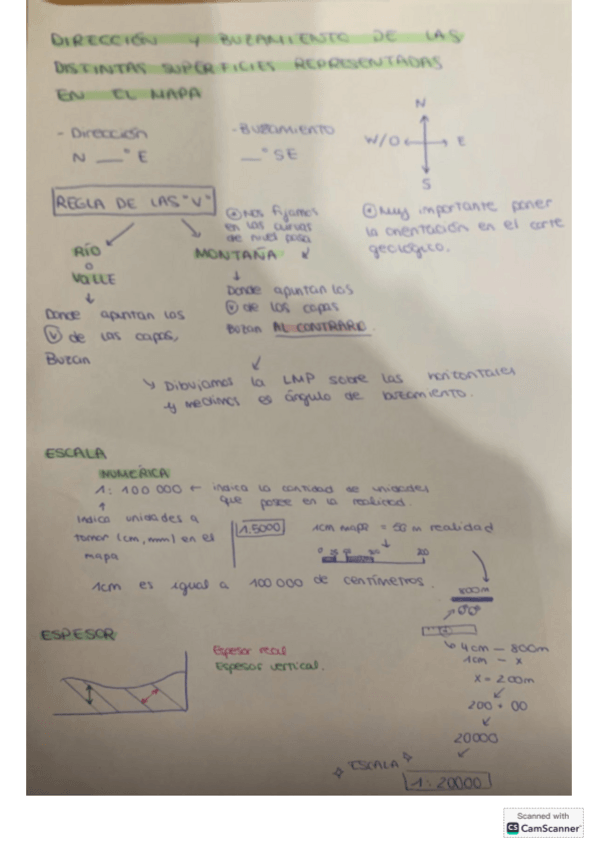 DIRECCIÓN Y BUZAMIENTO DE LAS
DISTINTAS SUPERFICIES REPRESENTADAS
EN EL MAPA
- Dirección
N __° E
- BUZAMIENTO
__° SE
N
W/O
E
S
REGLA DE LAS "V"
RÍO
o
VALLE
Donde apuntan las
V de las capas,
Buzan
Nos fijamos
en las curvas
de nivel
MONTAÑA
Donde apuntan las
V de las capas
Buzan AL CONTRARIO.
Muy importante poner
la orientación en el corte
geológico.
Dibujamos la LMP sobre las horizontales
y medimos es ángulo de buzamiento.
ESCALA
NUMÉRICA
1: 100 000 ← indica la cantidad de unidades
que posee en la realidad.
Indica unidades a
tomar (cm, mm) en el
mapa
1:5000
1cm mapa = 50 m realidad
0 25 50 100 200
1cm es igual a 100000 de centímetros.
800m
4cm — 800m
1cm — x
x = 200m
200 · 00
20000
ESCALA
1: 20000
ESPESOR
Espesor real
Espesor vertical.
Scanned with
CS CamScanner